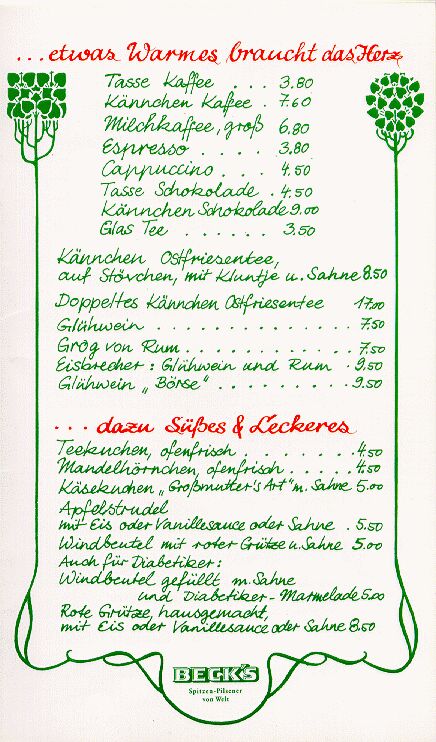 ...etwas Warmes braucht das Herz
Tasse Kaffee . . . 3.80
Kännchen Kaffee . 7.60
Milchkaffee, groß 6.80
Espresso . . . . 3.80
Cappuccino . . . 4.50
Tasse Schokolade . 4.50
Kännchen Schokolade 9.00
Glas Tee . . . . . . 3.50
Kännchen Ostfriesentee,
auf Stövchen, mit Kluntje u. Sahne 8.50
Doppeltes Kännchen Ostfriesentee 17.00
Glühwein . . . . . . . . . . . . . . 7.50
Grog von Rum . . . . . . . . . . . 7.50
Eisbrecher : Glühwein und Rum . 9.50
Glühwein „Börse" . . . . . . . . 9.50
... dazu Süßes & Leckeres
Teekuchen, ofenfrisch . . . . . . . . 4.50
Mandelhörnchen, ofenfrisch . . . . . 4.50
Käsekuchen „Großmutter's Art" m. Sahne 5.00
Apfelstrudel
mit Eis oder Vanillesauce oder Sahne . 5.50
Windbeutel mit roter Grütze u. Sahne 5.00
Auch für Diabetiker :
Windbeutel gefüllt m. Sahne
und Diabetiker-Marmelade 5.00
Rote Grütze, hausgemacht,
mit Eis oder Vanillesauce oder Sahne 8.50
BECK'S
Spitzen-Pilsener
von Welt